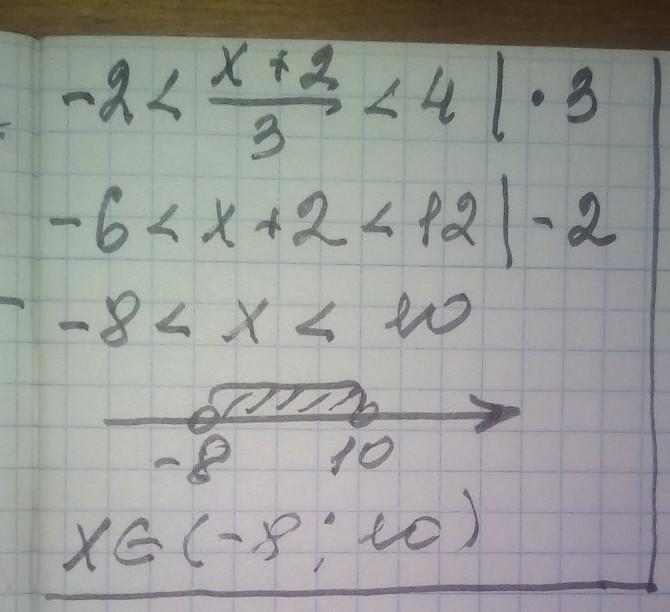 -2 < (x + 2)/3 < 4 | · 3
-6 < x + 2 < 12 | - 2
-8 < x < 10
-8 10
x ∈ (-8 ; 10)